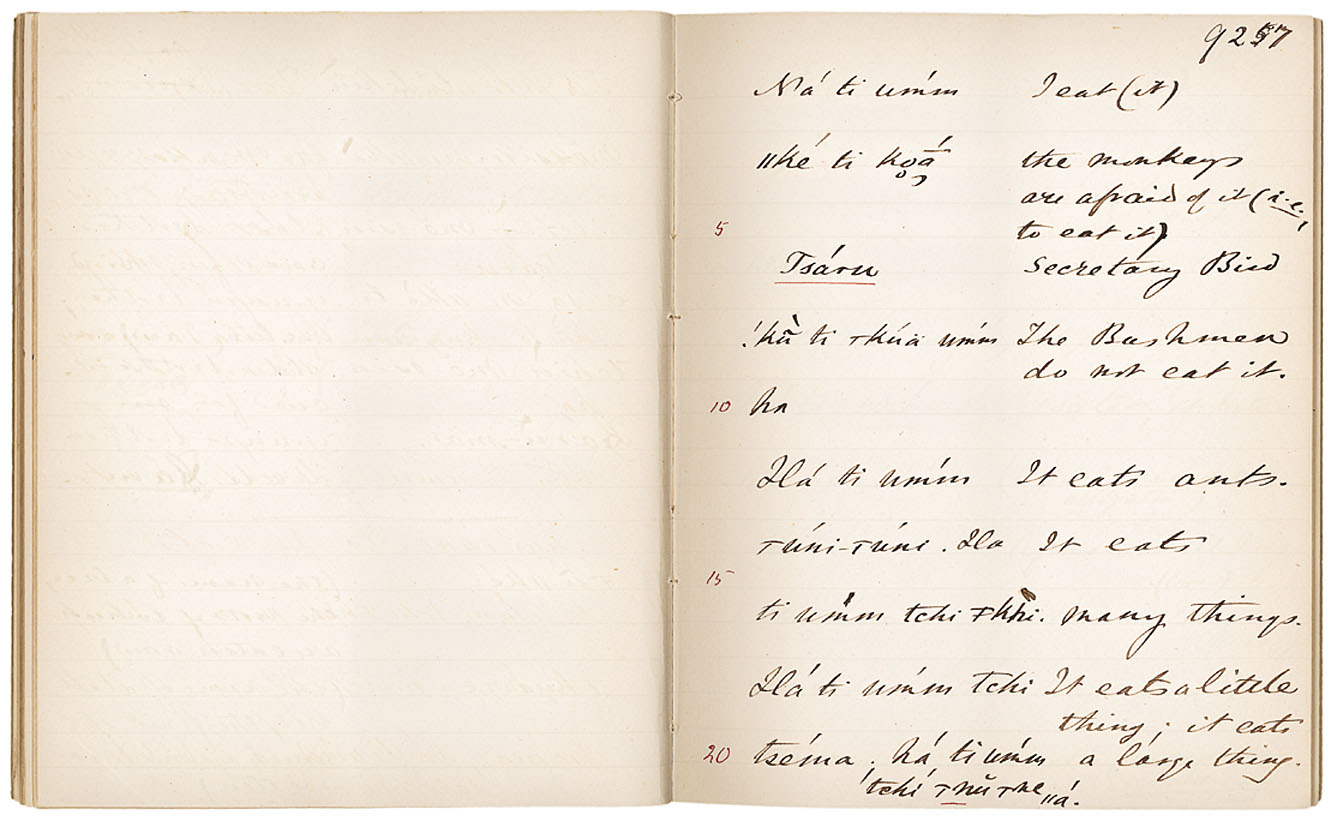 9257
Ná ti umḿ I eat (it)
ǁké ti ko̥ã́ the monkeys
are afraid of it (i.e.,
5 to eat it)
Tsáru Secretary Bird
!kã̀ ti ꞇkúä umḿ The Bushmen
do not eat it.
10 ha
Há ti umḿ It eats ants.
ꞇúni-ꞇúni. Ha It eats
15
ti umḿ tchi many things.
Há ti umḿ tchi It eats a little
thing; it eats
20 tséma. há ti umḿ a large thing.
tchí ꞇnŭꞇne ǁá.